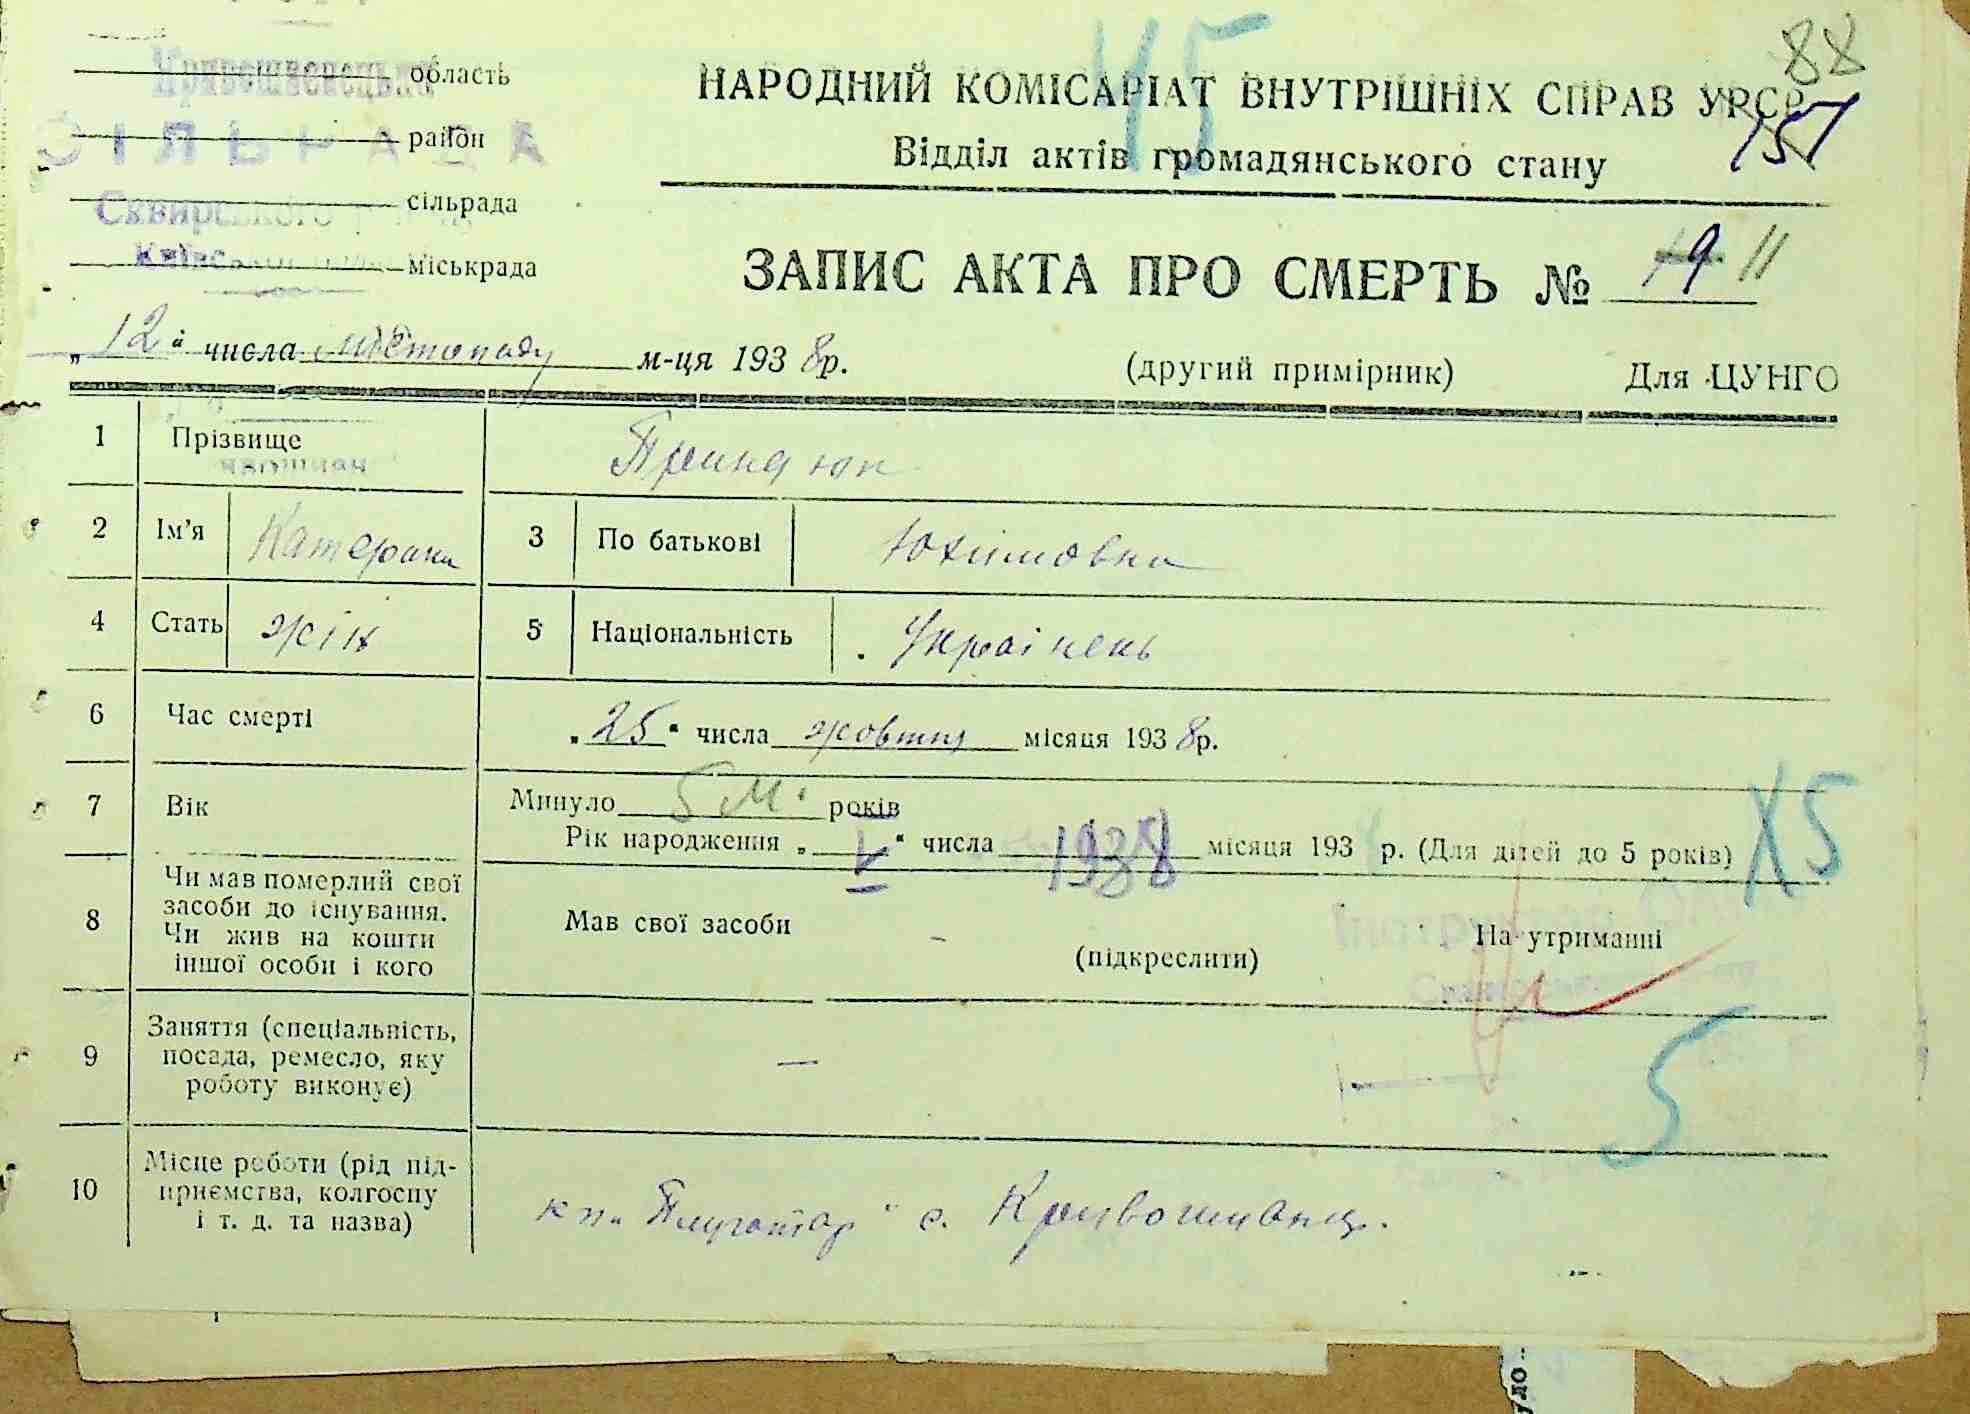 88
45
Кривошиєнецька область
НАРОДНИЙ КОМІСАРІАТ ВНУТРІШНІХ СПРАВ УРСР
151
СІЛЬРАДА район
Відділ актів громадянського стану
сільрада
Сквирського
міськрада
ЗАПИС АКТА ПРО СМЕРТЬ № 19 11
„12" числа листопаду м-ця 1938р.
(другий примірник) Для ЦУНГО
1 Прізвище
2 Ім'я Катерина 3 По батькові Юхимовна
4 Стать жін 5 Національність Українець
6 Час смерті „25" числа жовтня місяця 1938р.
7 Вік Минуло 5 м. років
Рік народження „V" числа 1938 місяця 193 р. (Для дітей до 5 років) X5
8 Чи мав померлий свої
засоби до існування.
Чи жив на кошти
іншої особи і кого
Мав свої засоби – (підкреслити) На утриманні
9 Заняття (спеціальність,
посада, ремесло, яку
роботу виконує)
—
5
10 Місце роботи (рід під-
приємства, колгоспу
і т. д. та назва)
с. Кривошиинц.